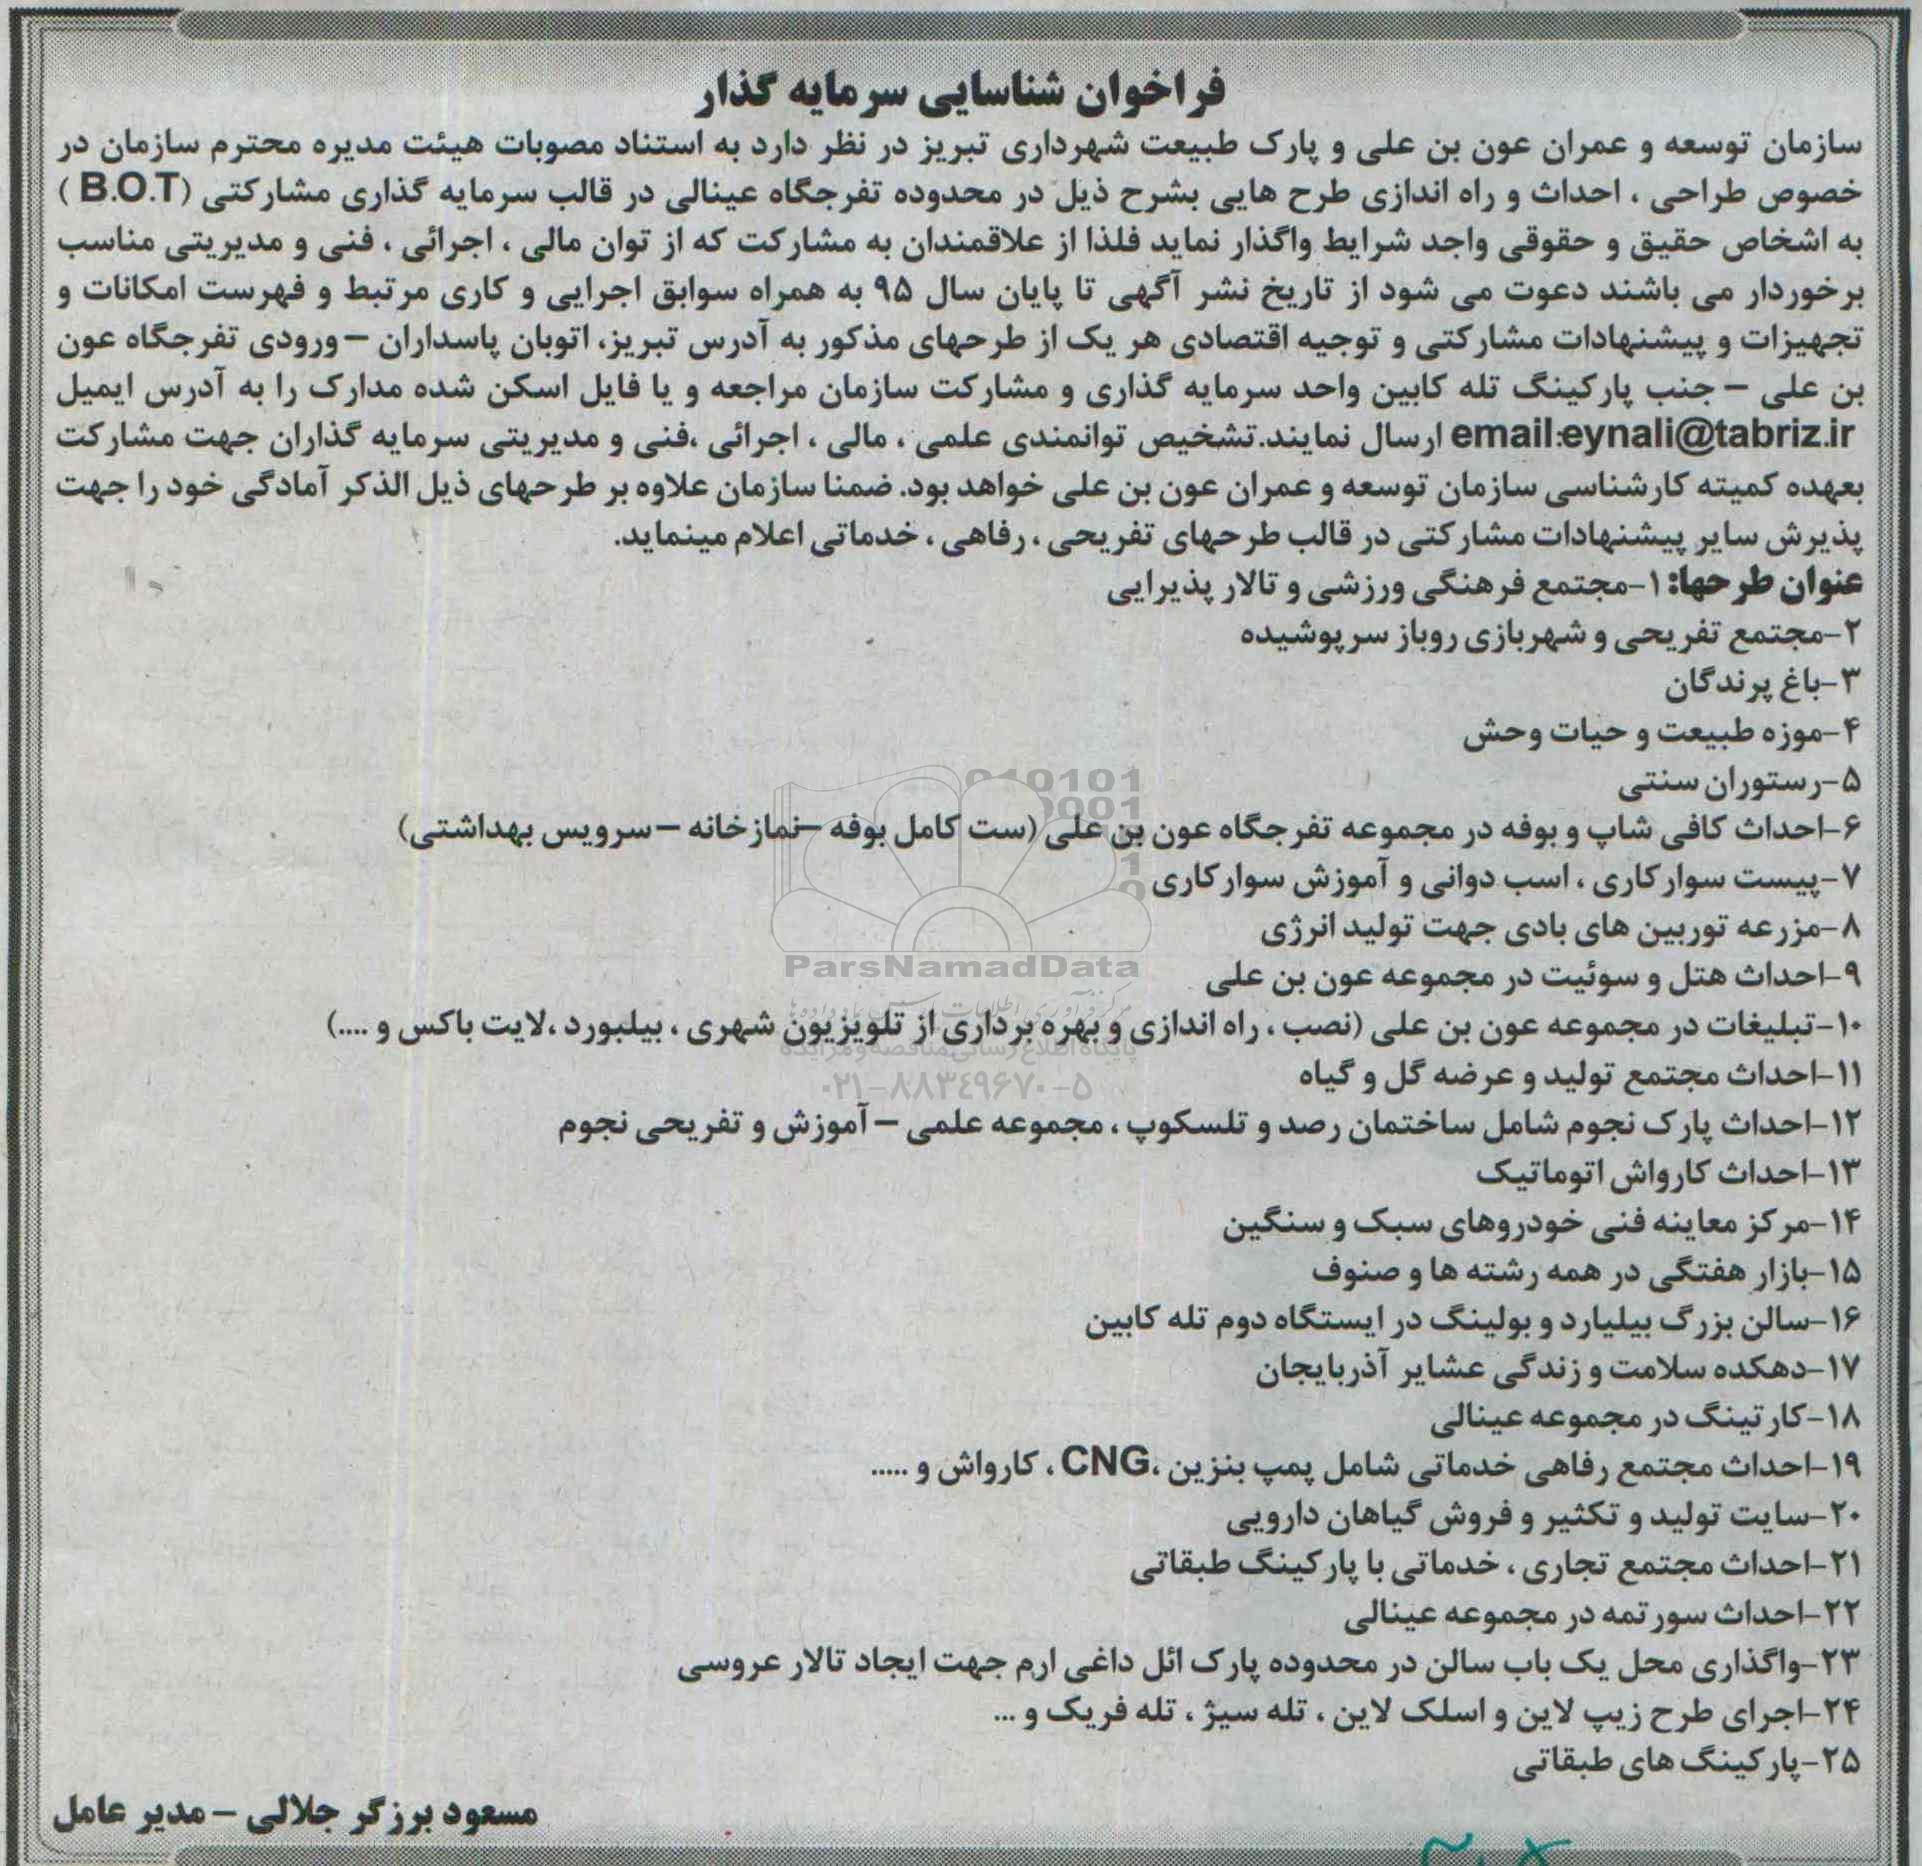 فراخوان شناسایی سرمایه گذار
سازمان توسعه و عمران عون بن علی و پارک طبیعت شهرداری تبریز در نظر دارد به استناد مصوبات هیئت مدیره محترم سازمان در
خصوص طراحی ، احداث و راه اندازی طرح هایی بشرح ذیل در محدوده تفرجگاه عینالی در قالب سرمایه گذاری مشارکتی (B.O.T )
به اشخاص حقیق و حقوقی واجد شرایط واگذار نماید فلذا از علاقمندان به مشارکت که از توان مالی ، اجرائی ، فنی و مدیریتی مناسب
برخوردار می باشند دعوت می شود از تاریخ نشر آگهی تا پایان سال ۹۵ به همراه سوابق اجرایی و کاری مرتبط و فهرست امکانات و
تجهیزات و پیشنهادات مشارکتی و توجیه اقتصادی هر یک از طرحهای مذکور به آدرس تبریز، اتوبان پاسداران –ورودی تفرجگاه عون
بن علی – جنب پارکینگ تله کابین واحد سرمایه گذاری و مشارکت سازمان مراجعه و یا فایل اسکن شده مدارک را به آدرس ایمیل
email:eynali@tabriz.ir ارسال نمایند.تشخیص توانمندی علمی ، مالی ، اجرائی ،فنی و مدیریتی سرمایه گذاران جهت مشارکت
بعهده کمیته کارشناسی سازمان توسعه و عمران عون بن علی خواهد بود. ضمنا سازمان علاوه بر طرحهای ذیل الذکر آمادگی خود را جهت
پذیرش سایر پیشنهادات مشارکتی در قالب طرحهای تفریحی ، رفاهی ، خدماتی اعلام مینماید.
عنوان طرحها: ۱-مجتمع فرهنگی ورزشی و تالار پذیرایی
۲-مجتمع تفریحی و شهربازی روباز سرپوشیده
۳-باغ پرندگان
۴-موزه طبیعت و حیات وحش
۵-رستوران سنتی
۶-احداث کافی شاپ و بوفه در مجموعه تفرجگاه عون بن علی (ست کامل بوفه –نمازخانه –سرویس بهداشتی)
۷-پیست سوارکاری ، اسب دوانی و آموزش سوارکاری
۸-مزرعه توربین های بادی جهت تولید انرژی
ParsNamadData
۹-احداث هتل و سوئیت در مجموعه عون بن علی
۱۰-تبلیغات در مجموعه عون بن علی (نصب ، راه اندازی و بهره برداری از تلویزیون شهری ، بیلبورد ،لایت باکس و ....)
پایگاه اطلاع رسانی مناقصه و مزایده
۱۱-احداث مجتمع تولید و عرضه گل و گیاه
۰۲۱-۸۸۳۴۹۶۷۰-۵
۱۲-احداث پارک نجوم شامل ساختمان رصد و تلسکوپ ، مجموعه علمی – آموزش و تفریحی نجوم
۱۳-احداث کارواش اتوماتیک
۱۴-مرکز معاینه فنی خودروهای سبک و سنگین
۱۵-بازار هفتگی در همه رشته ها و صنوف
۱۶-سالن بزرگ بیلیارد و بولینگ در ایستگاه دوم تله کابین
۱۷-دهکده سلامت و زندگی عشایر آذربایجان
۱۸-کارتینگ در مجموعه عینالی
۱۹-احداث مجتمع رفاهی خدماتی شامل پمپ بنزین ،CNG ، کارواش و .....
۲۰-سایت تولید و تکثیر و فروش گیاهان دارویی
۲۱-احداث مجتمع تجاری ، خدماتی با پارکینگ طبقاتی
۲۲-احداث سورتمه در مجموعه عینالی
۲۳-واگذاری محل یک باب سالن در محدوده پارک ائل داغی ارم جهت ایجاد تالار عروسی
۲۴-اجرای طرح زیپ لاین و اسلک لاین ، تله سیژ ، تله فریک و ...
۲۵-پارکینگ های طبقاتی
مسعود برزگر جلالی – مدیر عامل